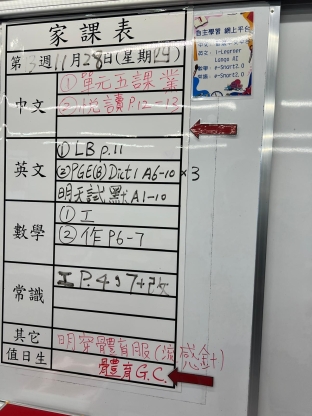 家課表
第3週11月28日(星期四)
中文
①單元五課業
②小說讀P12-13
英文
①LB p.11
②PGE(B) Dict1 A6-10 ×3
明天試默A1-10
數學
①工
②作P6-7
常識
工 P.4 9 7+改
其它
明穿體育服(流感針)
值日生
體育G.C.
自主學習 網上平台
英文：i-Learner
Longo AI
數學：e-Smart2.0
常識：e-Smart2.0